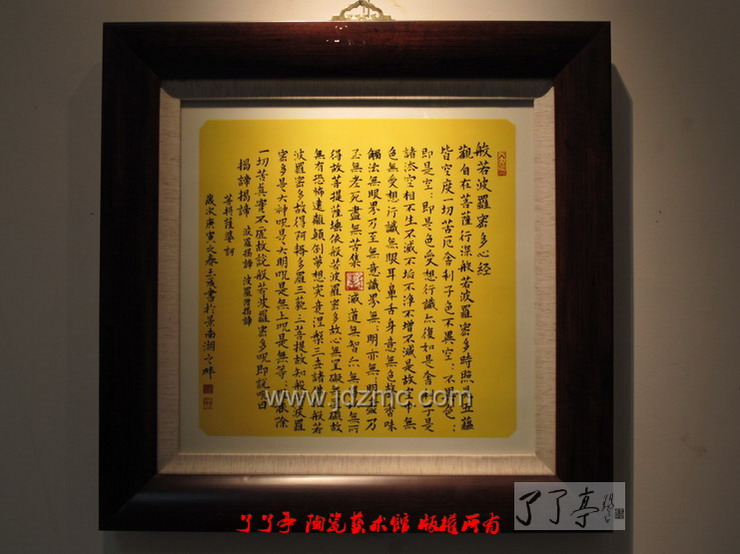 般若波羅密多心經
觀自在菩薩行深般若波羅密多時照見五蘊
皆空度一切苦厄舍利子色不異空:不異色:
即是空:即是色受想行識亦復如是舍利子是
諸法空相不生不滅不垢不淨不增不減是故空中無
色無受想行識無眼耳鼻舌身意無色聲香味
觸法無眼界乃至無意識界無:明亦無:明盡乃
至無老死盡無苦集滅道無智亦無得以無所
得故菩提薩埵依般若波羅密多故心無罣礙無罣礙故
無有恐怖遠離顛倒夢想究竟涅槃三世諸佛依般若
波羅密多故得阿耨多羅三藐三菩提故知般若波羅
密多是大神呪是大明呪是無上呪是無等:呪能除
一切苦真實不虛故說般若波羅密多呪即說呪曰
揭諦揭諦 波羅揭諦 波羅僧揭諦
菩提薩婆訶
歲次庚寅之春書於景南湖之畔
www.jdzmc.com
了了亭 陶瓷艺术馆 版权所有
了了亭